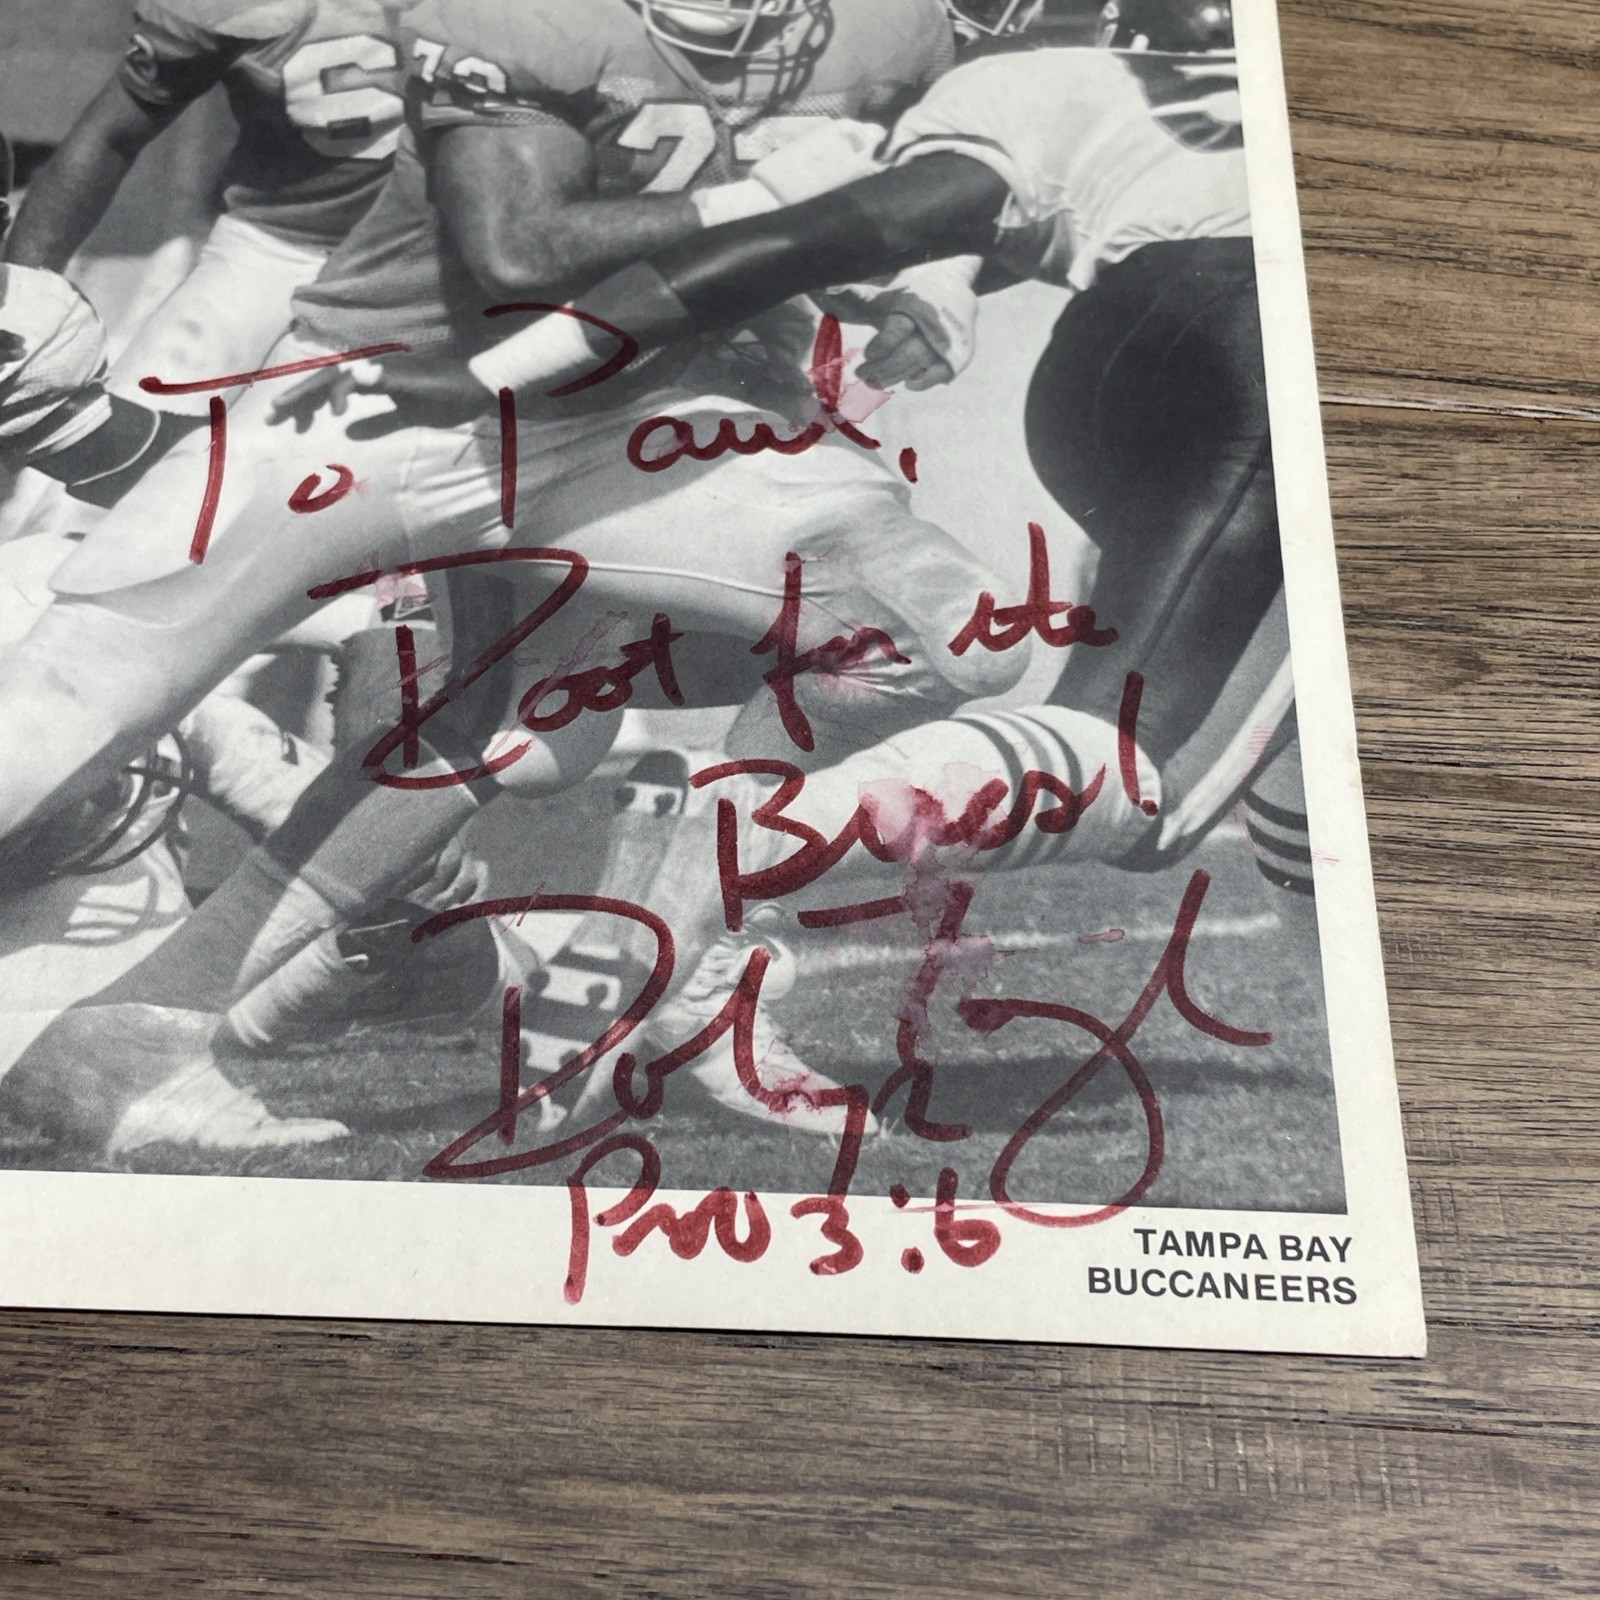 6
72
72
To Paul,
Root for the
Bucs!
Prov 3:6
TAMPA BAY
BUCCANEERS